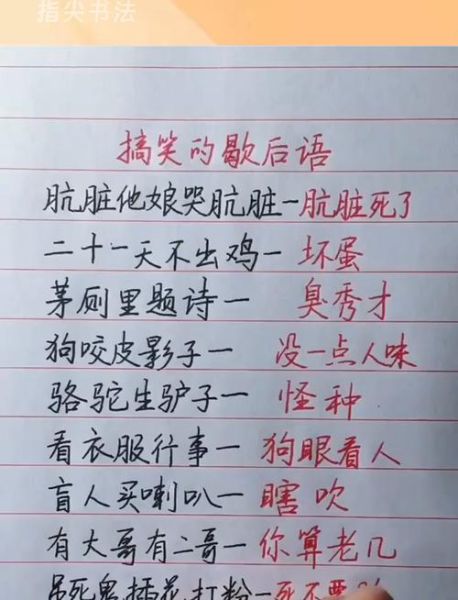 指尖书法
搞笑的歇后语
肮脏他娘哭肮脏-肮脏死了
二十一天不出鸡-坏蛋
茅厕里题诗-臭秀才
狗咬皮影子-没一点人味
骆驼生驴子-怪种
看衣服行事-狗眼看人
盲人买喇叭-瞎吹
有大哥有二哥-你算老几
吊死鬼插花打粉-死不要